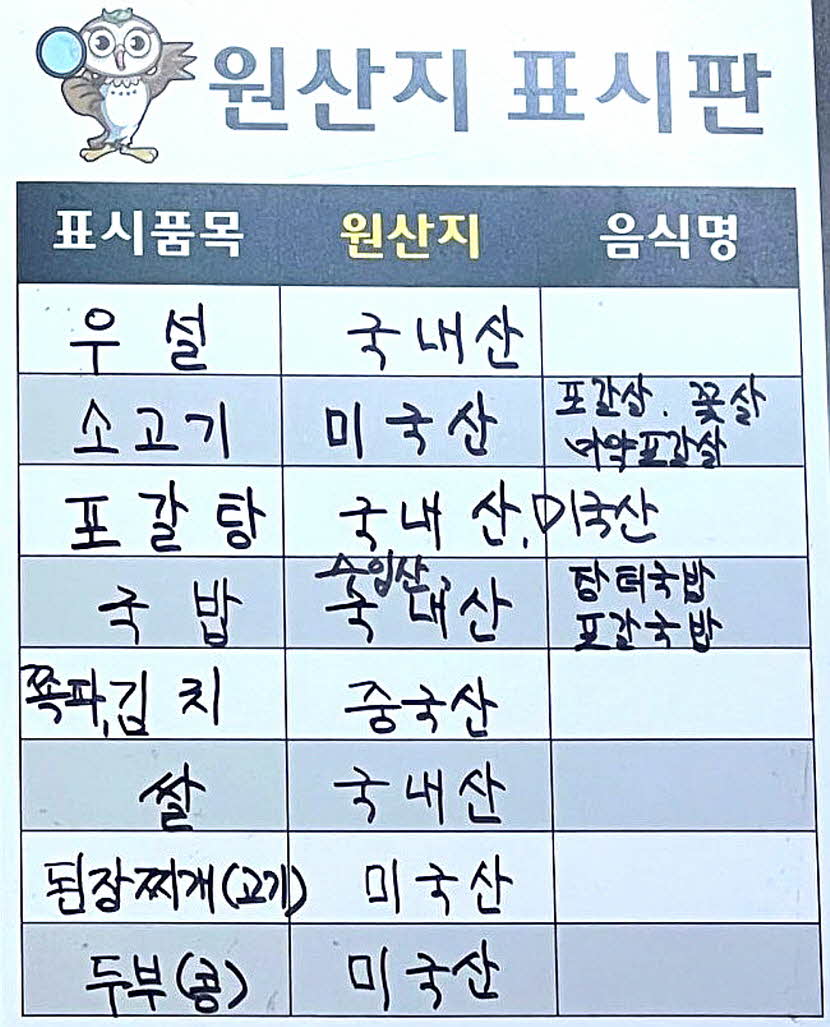 원산지 표시판
표시품목 원산지 음식명
우설 국내산
소고기 미국산 포갈살. 꽃살
마약포갈살
포갈탕 국내산, 미국산
국밥 수입산, 국내산 탕터국밥
포갈국밥
쪽파, 김치 중국산
쌀 국내산
된장찌개(고기) 미국산
두부(콩) 미국산